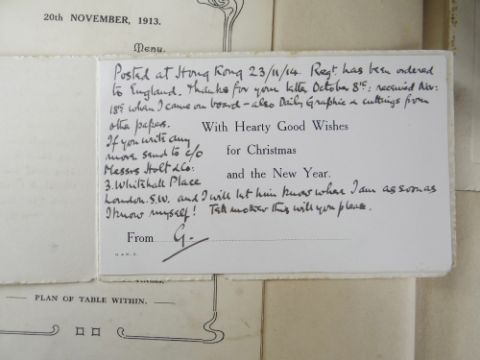 20th NOVEMBER, 1913.
Menu.
Posted at Hong Kong 23/11/14. Regt. has been ordered
to England. Thanks for your letter October 8th: received Nov:
18th when I came on board - also Daily Graphic & cuttings from
other papers.
With Hearty Good Wishes
If you write any
more send to c/o
for Christmas
Messrs Holt & Co:
and the New Year.
3. Whitehall Place
London. S.W. and I will let him know where I am as soon as
I know myself! Tell mother this will you please.
From G.
PLAN OF TABLE WITHIN.